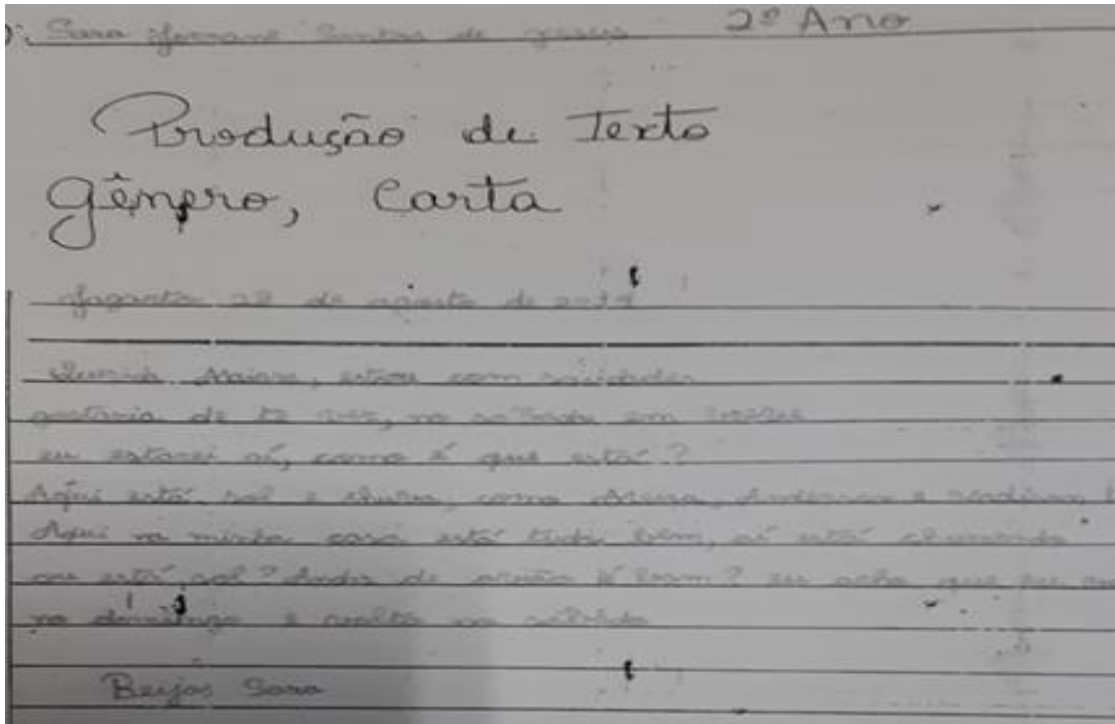 Sara Santos de jesus 2º Ano
Produção de Texto
Gênero, Carta
28 de agosto de
Querida Maiara, estou com saudades
gostaria de te ver, no sábado em
eu estarei aí, como é que está?
Aqui está sol e chuva, como Anderson e
Aqui na minha casa está tudo bem, aí está chuvendo
ou está sol? Andar de avião é bom? eu acho que eu
no domingo e volto no sábado
Beijos Sara